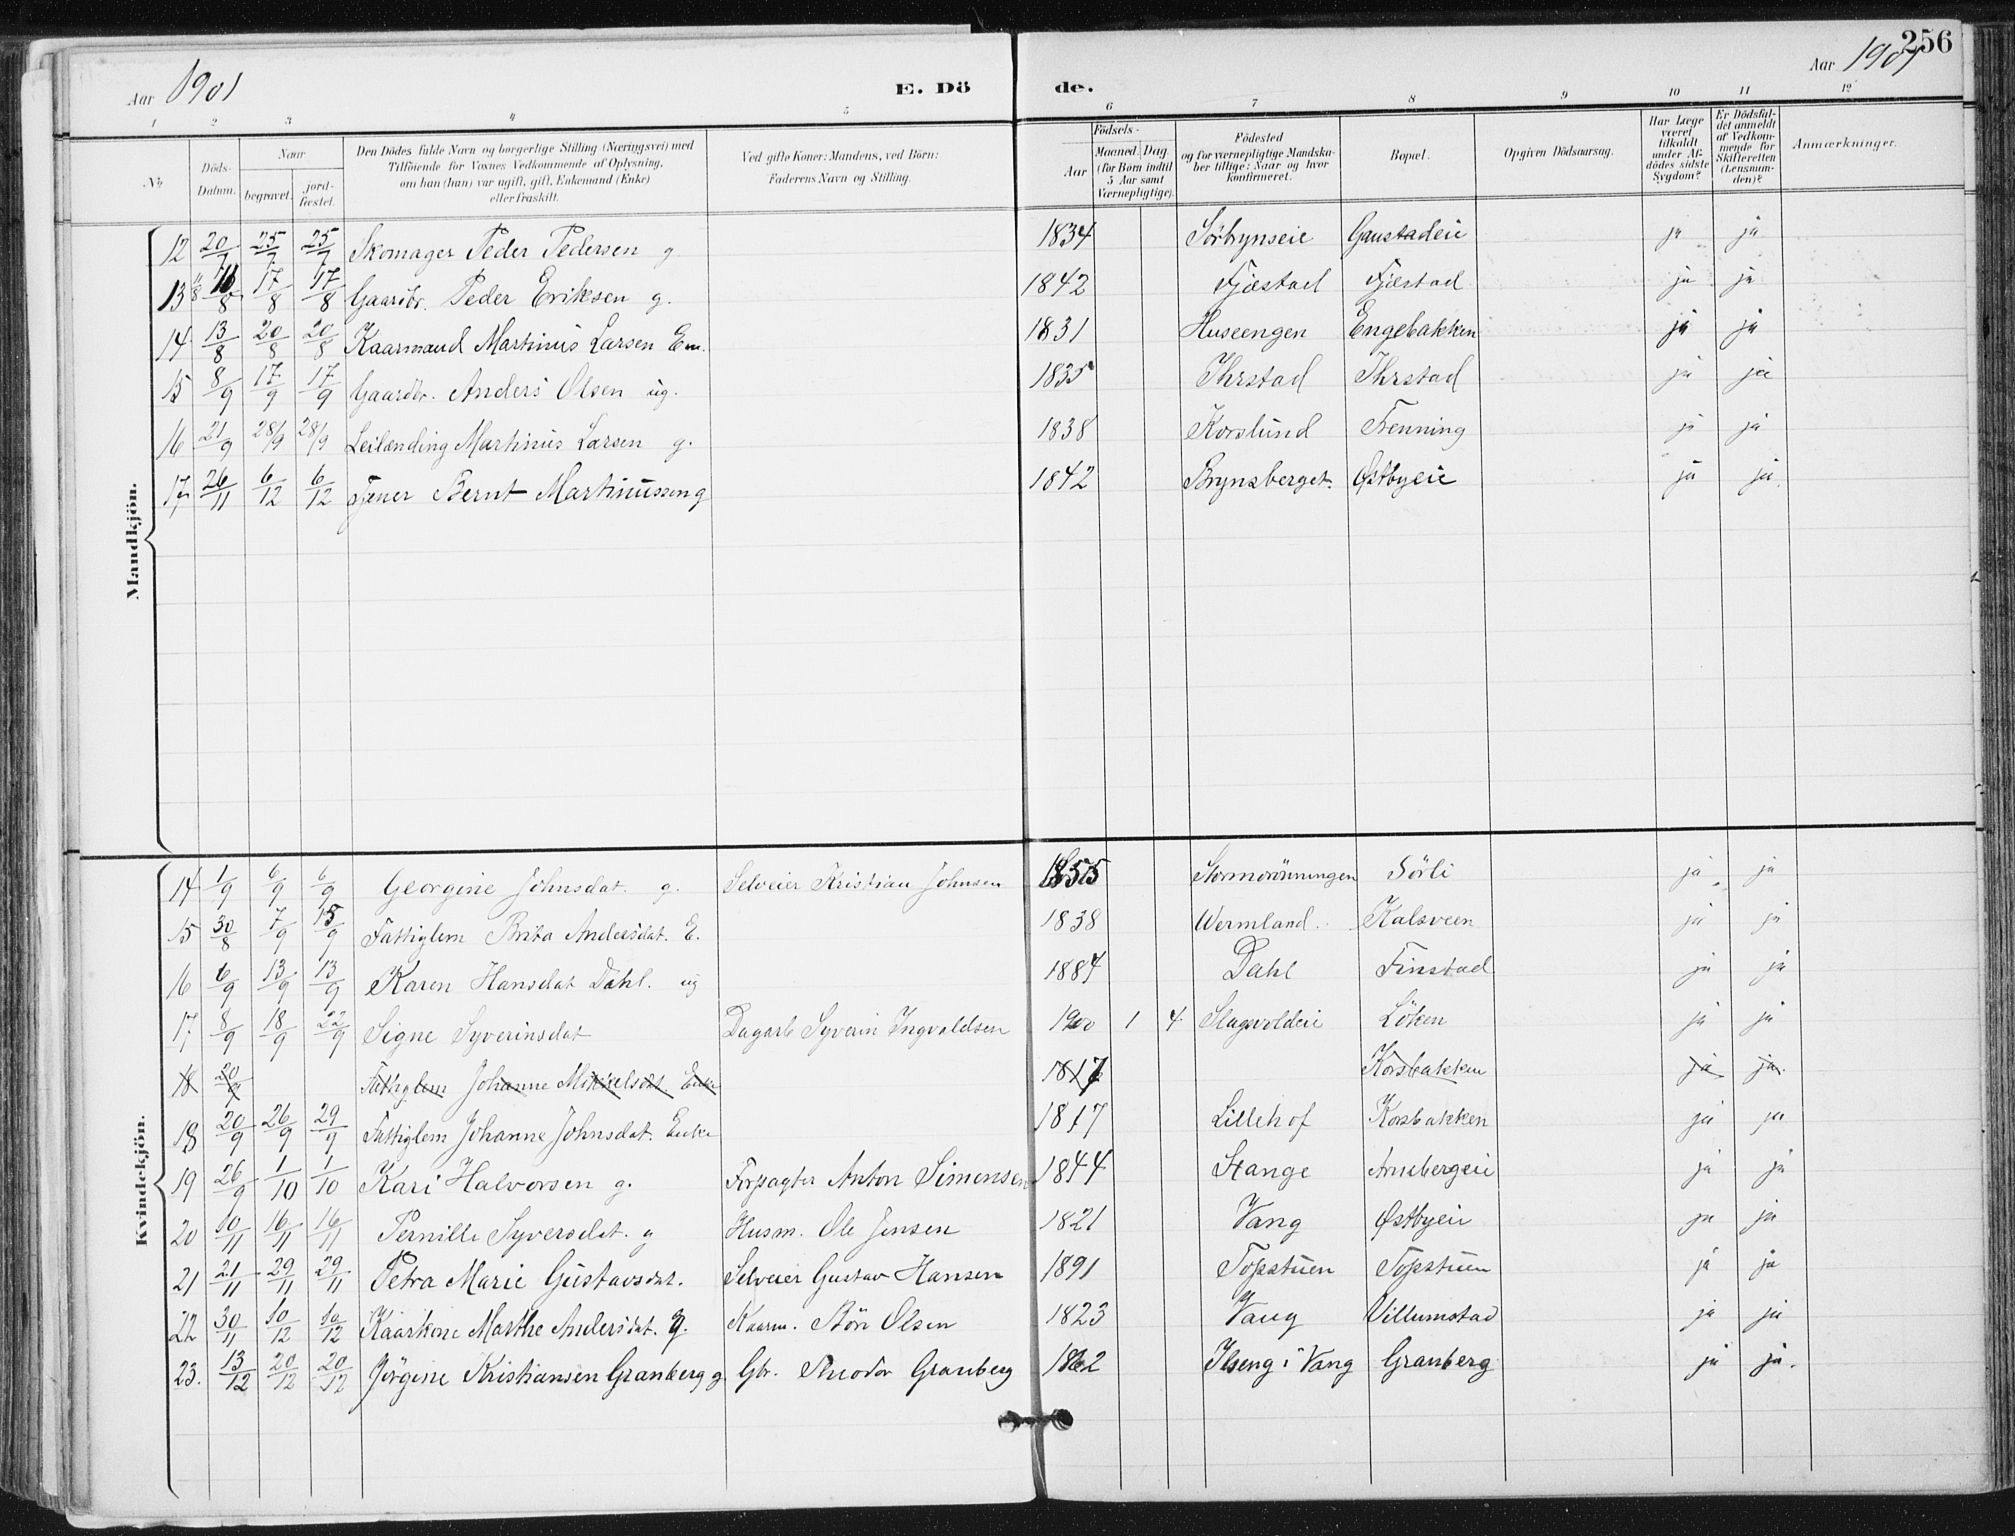 256
Aar 1901 E. Dö de. Aar 1901
1 2 3 4 5 6 7 8 9 10 11 12
No Döds-Datum. Naar begravet. jord-fæstet. Den Dödes fulde Navn og borgerlige Stilling (Næringsvei) med Tilföiende for Voxnes Vedkommende af Oplysning, om han (hun) var ugift, gift, Enkemand (Enke) eller fraskilt. Ved gifte Koner: Mandens, ved Börn: Faderens Navn og Stilling. Födsels- Aar Maaned. Dag. (for Börn indtil 5 Aar samt Værnepligtige). Födested og for værnepligtige Mandska-ber tillige: Naar og hvor konfirmeret. Bopæl. Opgiven Dödsaarsag. Har Læge været tilkaldt under Af-dödes sidste Sygdom? Er Dödsfal-det anmeldt af Vedkom-mende for Skifteretten (Lensman-den)? Anmærkninger.
Mandkjön.
12 20/7 25/7 25/7 Skomager Peder Pedersen g 1834 Sörbynseie Gaustadeie ja ja
13 11/8 17/8 17/8 Gaardbr. Peder Eriksen g. 1842 Fjæstad Fjæstad ja ja
14 13/8 20/8 20/8 Kaarmand Martinus Larsen Em. 1831 Huseengen Engebakken ja ja
15 8/9 17/9 17/9 Gaardbr. Anders Olsen ug. 1835 Ihrstad Ihrstad ja ja
16 21/9 28/9 28/9 Leilænding Martinus Larsen g. 1838 Korslund Frenning ja ja
17 26/11 6/12 6/12 Tjener Bernt Martinussen g 1842 Brynsberget Østbyeie ja ja.
Kvindekjön.
14 1/9 6/9 6/9 Georgine Johnsdat. g. Selveier Kristian Johnsen 1855 Stormorönningen Sörli ja ja
15 30/8 7/9 15/9 Fattiglem Brita Andersdat. E. 1838 Wermland Kalsveen ja ja
16 6/9 13/9 13/9 Karen Hansdat Dahl. ug 1884 Dahl Finstad ja ja
17 8/9 18/9 22/9 Signe Syverinsdat Dagarb Syverin Ingvaldsen 1900 1 4 Slagsvoldeie Löken ja ja
18 20/9 Fattiglem Johanne Mikkelsdat. Enke 1817 Korsbakken ja ja.
18 20/9 26/9 29/9 Fattiglem Johanne Johnsdat. Enke 1817 Lillehof Korsbakken ja ja
19 26/9 1/10 1/10 Kari Halvorsen g. Forpagter Anton Simensen 1844 Stange Arnebergeie ja ja
20 10/11 16/11 16/11 Pernille Syversdat. g Husm. Ole Jensen 1821 Vang Østbyeie ja ja
21 21/11 29/11 29/11 Petra Marie Gustavsdat. Selveier Gustav Hansen 1891 Topstuen Topstuen ja ja
22 30/11 10/12 10/12 Kaarkone Marthe Andersdat. g. Kaarm. Börre Olsen 1823 Vang Villumstad ja ja
23. 13/12 20/12 20/12 Jörgine Kristiansen Granberg g. Gbr. Theodor Granberg 1862 Ilseng i Vang Granberg ja ja.